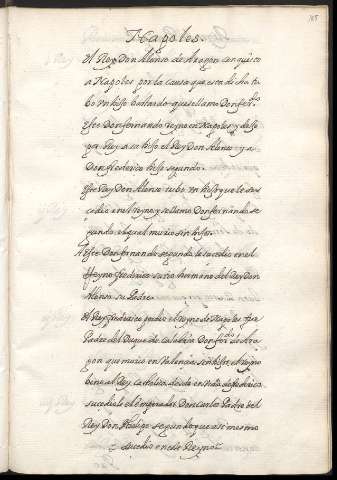 165
Napoles.
El Rey Don Alonso de Aragon conquisto
a Napoles por la causa que esta dicha tu
bo un hijo bastardo que se llamo Don fer.do
este Don fernando reyno en Napoles y dexo
por Rey a su hijo el Rey Don Alonso y a
Don federico hijo segundo.
Este Rey Don Alonso tubo un hijo que le su
cedio en el reyno y se llamo Don fernando se
gundo, el qual murio sin hijos.
A este Don fernando segundo le sucedio en el
Reyno federico su tio hermano del Rey Don
Alonso su Padre.
El Rey federico perdio el Reyno de Napoles fue
Padre del Duque de Calabria Don fer.do de Ara
gon que murio en Valencia sin hijos el reyno
bino al Rey Catholico desde en vida de federico
sucediole el emperador Don Carlos Padre del
Rey Don Phelipe segundo que asimesmo
sucedio en este Reyno